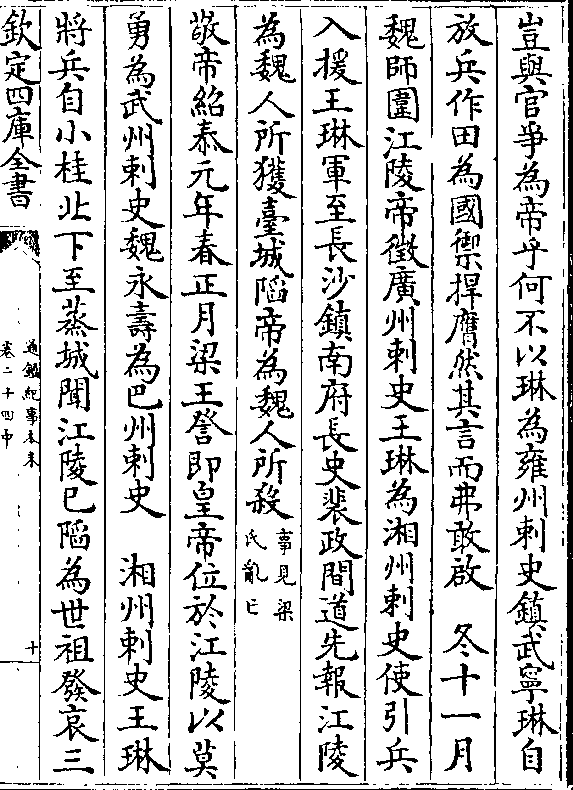 豈與官爭為帝乎何不以琳為雍州刺史鎮武寧琳自
放兵作田為國禦捍膺然其言而弗敢啟　冬十一月
魏師圍江陵帝徵廣州刺史王琳為湘州刺史使引兵
入援王琳軍至長沙鎮南府長史裴政間道先報江陵
為魏人所獲臺城陷帝為魏人所殺事見梁
氏亂亡
敬帝紹泰元年春正月梁王詧即皇帝位於江陵以莫
勇為武州刺史魏永壽為巴州刺史　湘州刺史王琳
將兵自小桂北下至蒸城聞江陵已陷為世祖發哀三
欽定四庫全書
通鑑紀事本末
卷二十四中
十